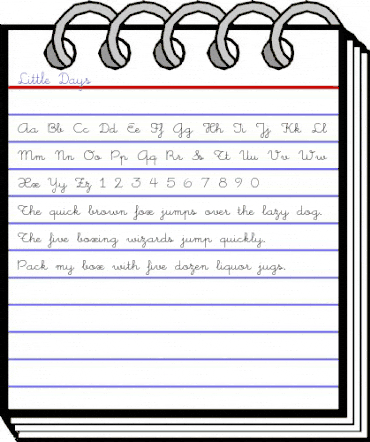 Little Days
Aa Bb Cc Dd Ee Ff Gg Hh Ii Jj Kk Ll
Mm Nn Oo Pp Qq Rr Ss Tt Uu Vv Ww
Xx Yy Zz 1 2 3 4 5 6 7 8 9 0
The quick brown fox jumps over the lazy dog.
The five boxing wizards jump quickly.
Pack my box with five dozen liquor jugs.